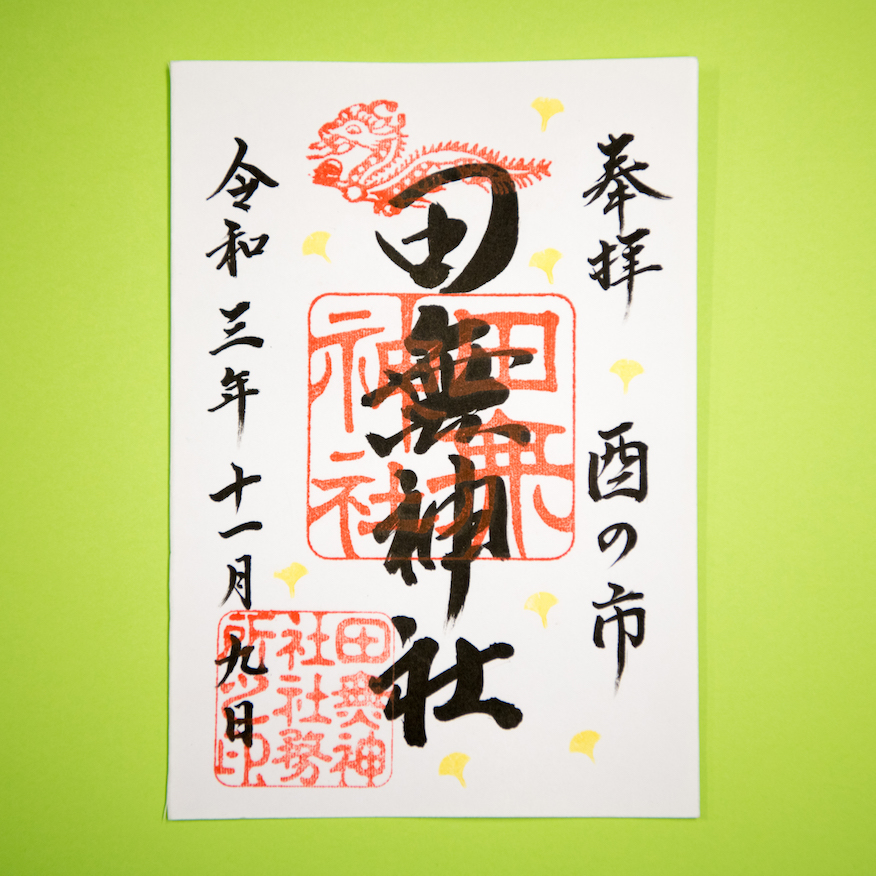 奉拝 酉の市
田無神社
令和三年十一月九日
田無
神社
田無神
社社務
所之印